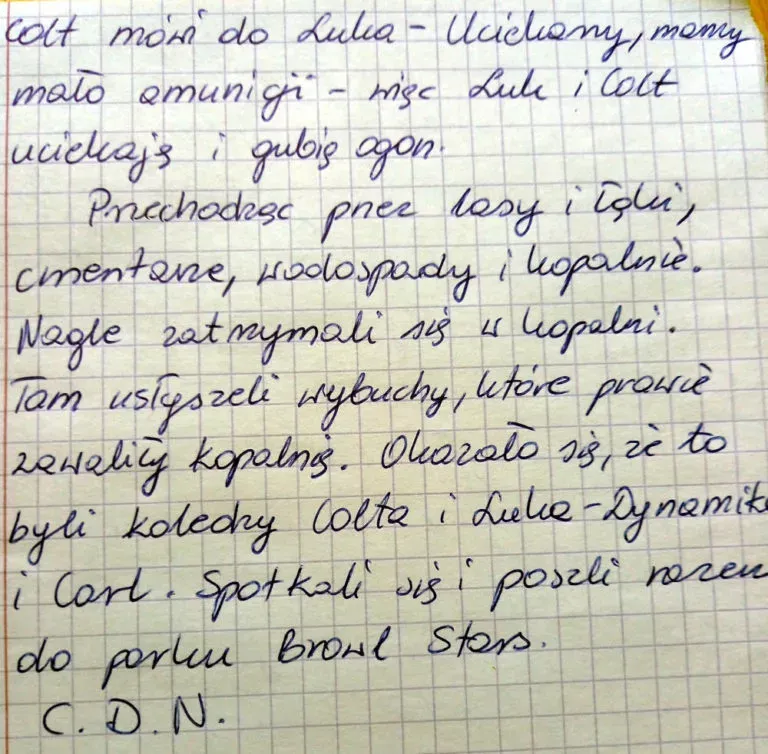 Colt mówi do Luka - Uciekamy, mamy
mało amunicji - więc Luk i Colt
uciekają i gubią ogon.
Przechodząc przez lasy i łąki,
cmentarze, wodospady i kopalnie.
Nagle zatrzymali się w kopalni.
Tam usłyszeli wybuchy, które prawie
zawaliły kopalnię. Okazało się, że to
byli koledzy Colta i Luka - Dynamike
i Carl. Spotkali się i poszli razem
do parku Browl Stars.
C. D. N.